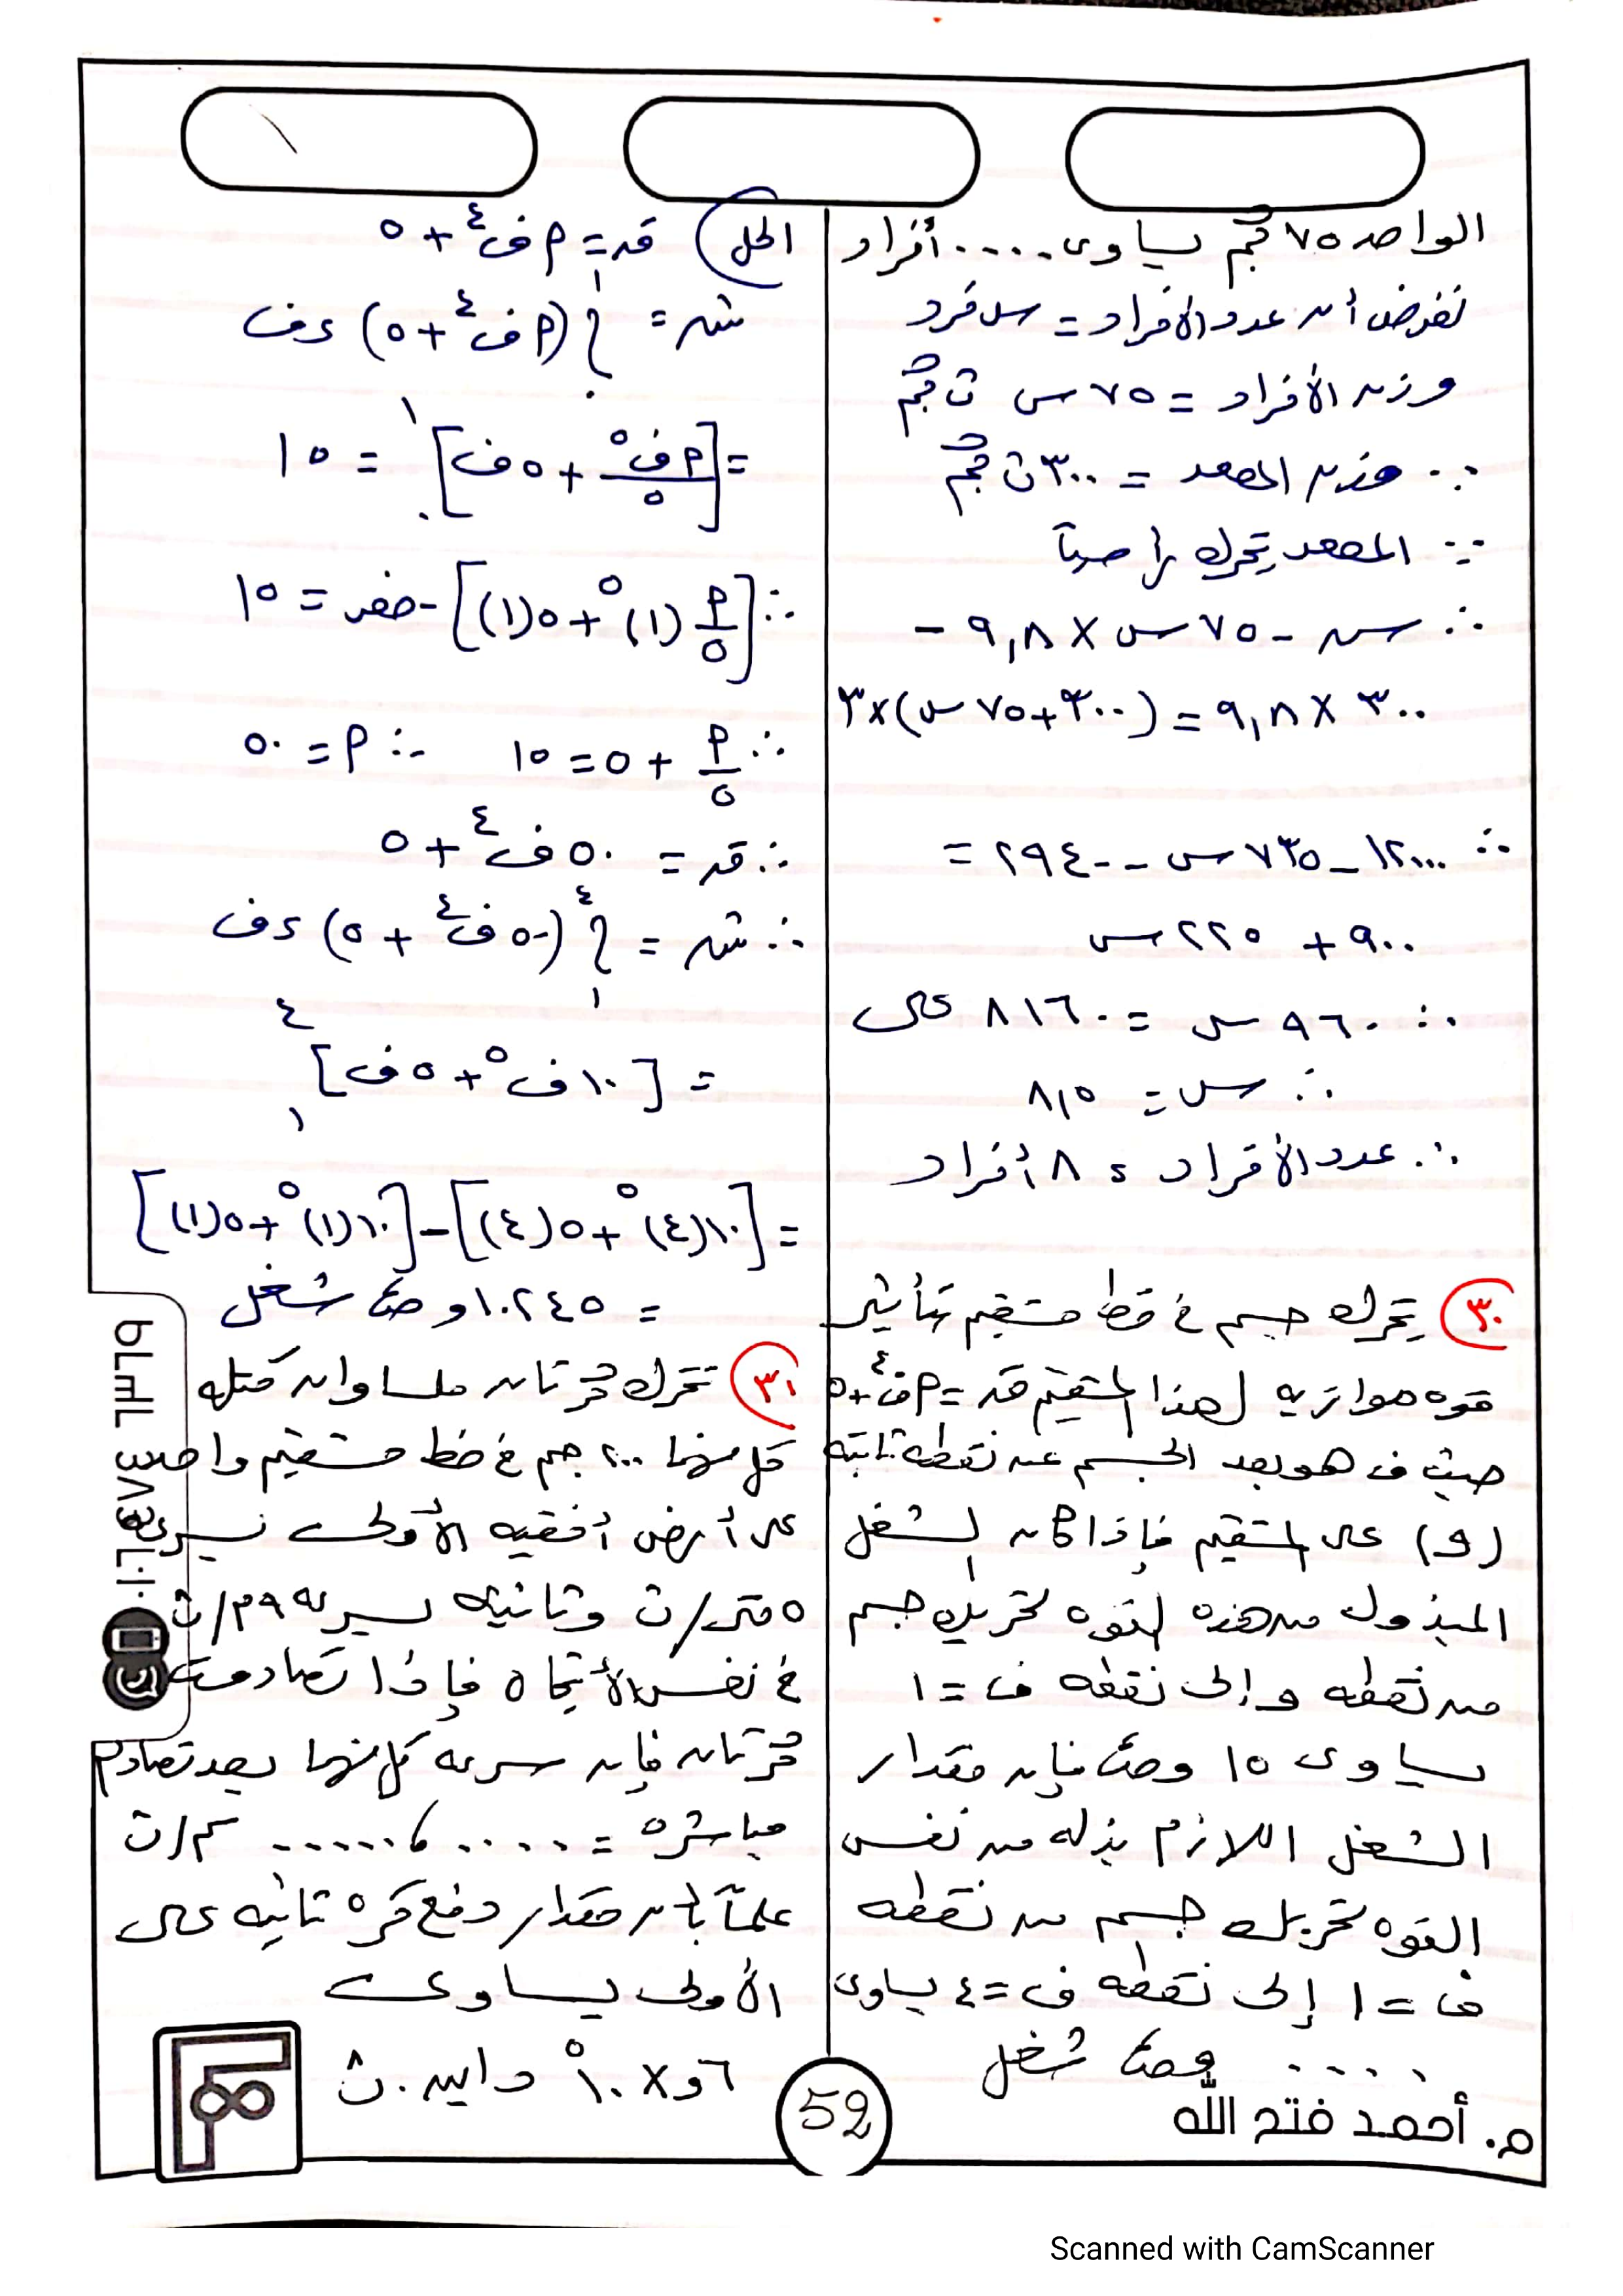 الواحد ٧٥ كجم يساوى .... أفراد
نفرض أن عدد الأفراد = س فرد
وزن الأفراد = ٧٥ س ث كجم
∵ وزن المصعد = ٣٠٠ ث كجم
∵ المصعد يتحرك رأسياً
∴ سہ - ٧٥ س × ٩,٨ -
٣٠٠ × ٩,٨ = (٣٠٠ + ٧٥ س) × ٣
∴ ١٢٠٠٠ - ٧٣٥ س - ٢٩٤٠ =
٩٠٠ + ٢٢٥ س
∴ ٩٦٠ س = ٨١٦٠
∴ س = ٨,٥
∴ عدد الأفراد = ٨ أفراد
٣٠ يتحرك جسم فى خط مستقيم تأثير
قوه موازيه لهذا المستقيم قہ = م ف^٤ + ٥
حيث ف هو بعد الجسم عن نقطه ثابته
(و) على المستقيم فإذا كان الشغل
المبذول من هذه القوه لتحريك جسم
من نقطه و إلى نقطه ف = ١
يساوى ١٥ وحدة فإن مقدار
الشغل اللازم بذله من نفس
القوه لتحريك جسم من نقطه
ف = ١ إلى نقطه ف = ٤ يساوى
.... وحدة شغل
الحل قہ = م ف^٤ + ٥
شہ = ∫_٠^١ (م ف^٤ + ٥) ء ف
= [م ف^٥/٥ + ٥ ف]_٠^١ = ١٥
∴ [م/٥ (١)^٥ + ٥(١)] - صفر = ١٥
∴ م/٥ + ٥ = ١٥ ∴ م = ٥٠
∴ قہ = ٥٠ ف^٤ + ٥
∴ شہ = ∫_١^٤ (٥٠ ف^٤ + ٥) ء ف
= [١٠ ف^٥ + ٥ ف]_١^٤
= [١٠(٤)^٥ + ٥(٤)] - [١٠(١)^٥ + ٥(١)]
= ١٠٢٤٥ وحدة شغل
٣١ تتحرك كرتان ملساوان كتله
كل منهما ٢٠٠ جم فى خط مستقيم واحد
على أرض أفقيه الأولى بسرعه
٥ متر/ث وثانيه بسرعه ٩ م/ث
فى نفس الأتجاه فإذا تصادمت
كرتان فإن سرعه كل منهما بعد تصادم
مباشره = ..... ، ...... سم/ث
علماً بأن مقدار دفع كره ثانيه على
الأولى يساوى
٦و × ١٠^٥ داين.ث
٠١٠٦
م. أحمد فتح الله
52
Scanned with CamScanner